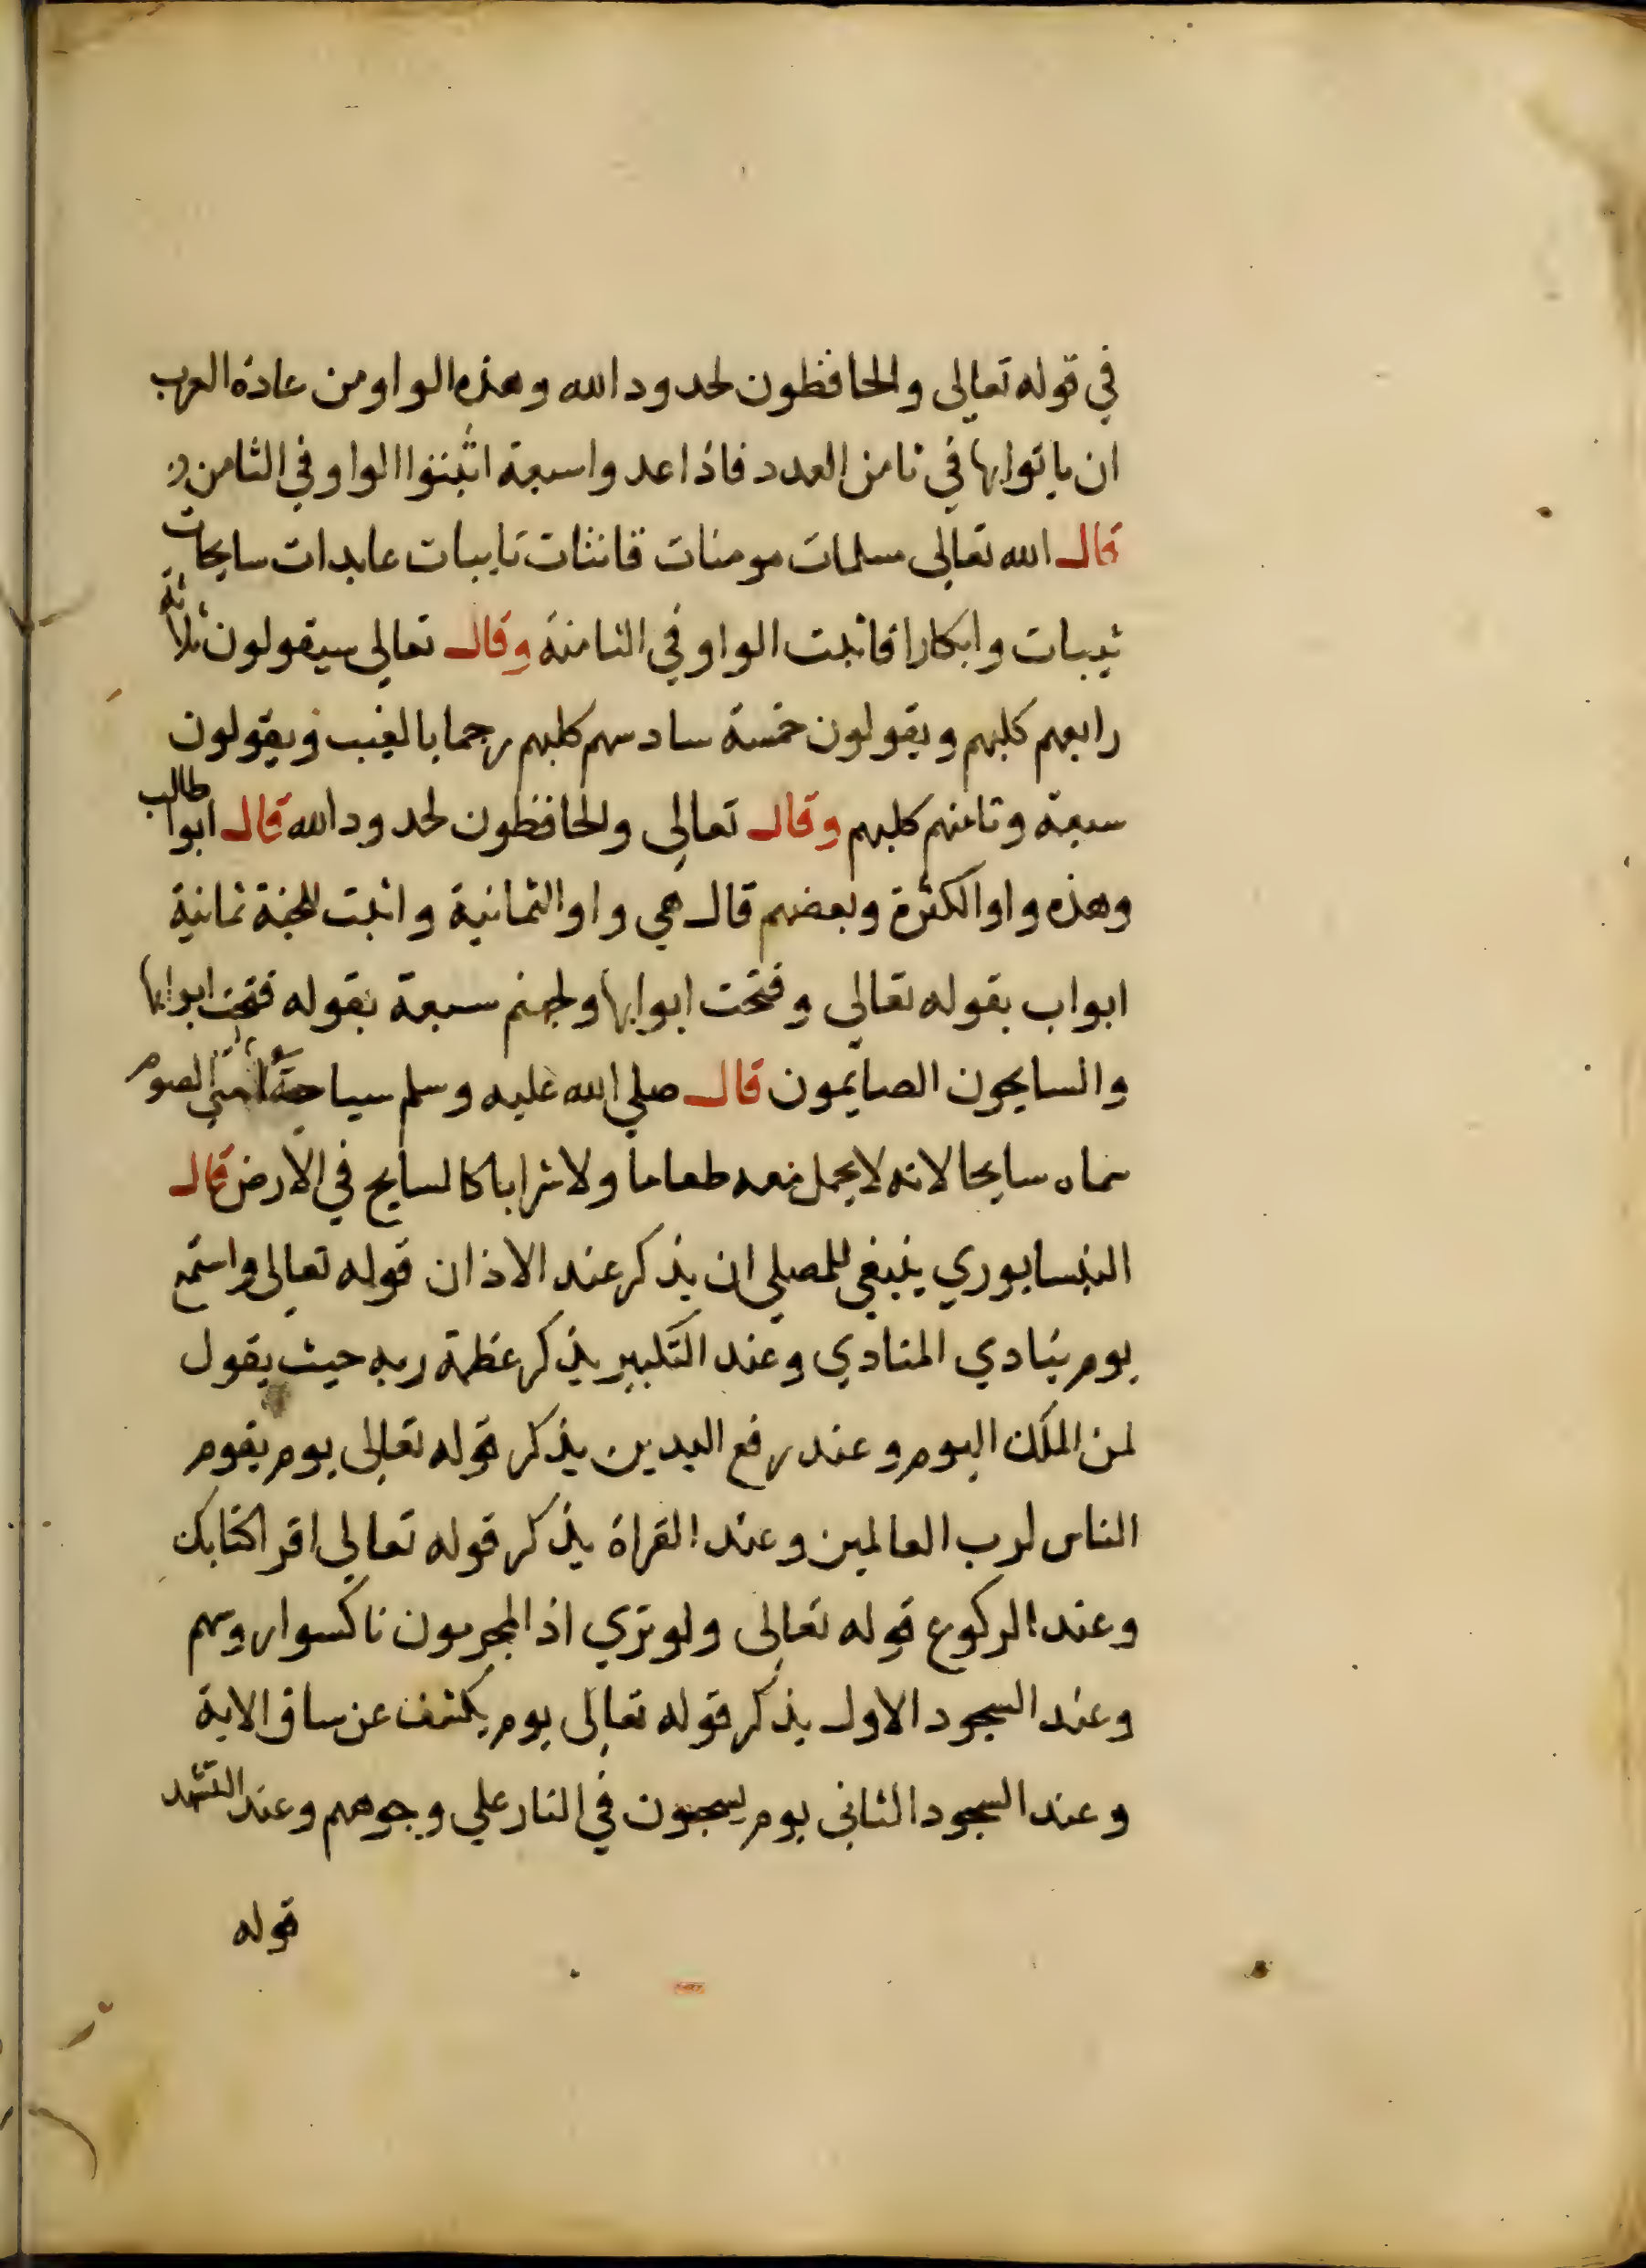 في قوله تعالى والحافظون لحدود الله وهذه الواو من عادة العرب
ان ياتوا بها في ثامن العدد فاذا عدوا سبعة اثبتوا الواو في الثامن
قال الله تعالى مسلمات مومنات قانتات تايبات عابدات سايحات
ثيبات وابكارا فاثبت الواو في الثامنة وقال تعالى سيقولون ثلاثة
رابعهم كلبهم ويقولون خمسة سادسهم كلبهم رجما بالغيب ويقولون
سبعة وثامنهم كلبهم وقال تعالى والحافظون لحدود الله قال ابوا طالب
وهذه واو الكثرة وبعضهم قال هي واو الثمانية واثبت للجنة ثمانية
ابواب بقوله تعالي وفتحت ابوابها ولجهنم سبعة بقوله فتحت ابوابها
والسايحون الصايمون قال صلي الله عليه وسلم سياحة امتي الصوم
سماه سايحا لانه لا يحمل معه طعاما ولا شرابا كالسايح في الارض قال
النيسابوري ينبغي للمصلي ان يذكر عند الاذان قوله تعالى واستمع
يوم ينادي المنادي وعند التكبير يذكر عظمة ربه حيث يقول
لمن الملك اليوم وعند رفع اليدين يذكر قوله تعالى يوم يقوم
الناس لرب العالمين وعند القراة يذكر قوله تعالي اقرا كتابك
وعند الركوع قوله تعالى ولو تري اذ المجرمون ناكسوا روسهم
وعند السجود الاول يذكر قوله تعالى يوم يكشف عن ساق الاية
وعند السجود الثاني يوم يسحبون في النار علي وجوههم وعند التشهد
قوله